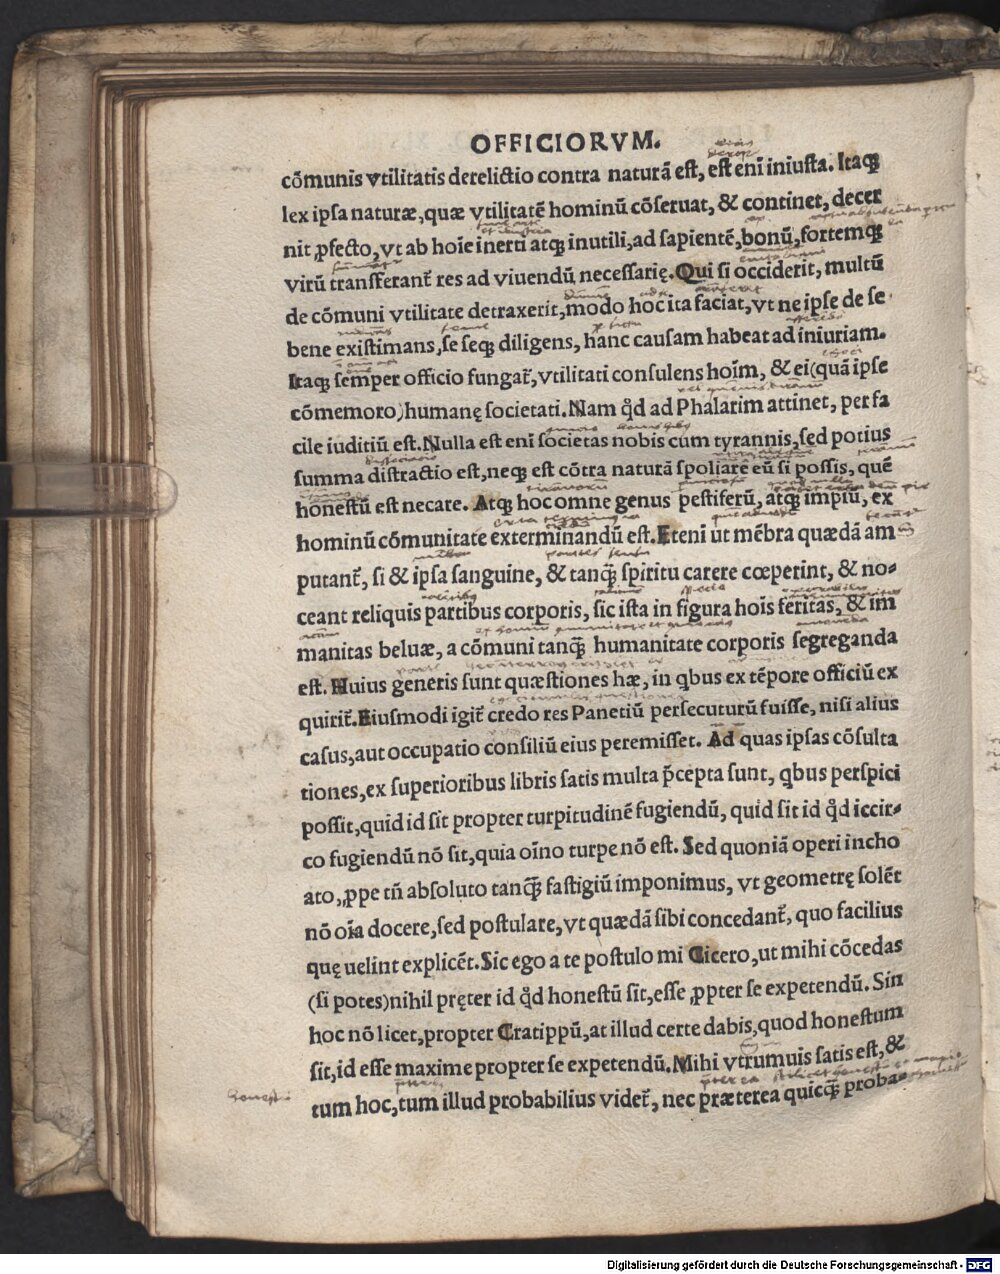 OFFICIORVM.
cõmunis vtilitatis derelictio contra naturã est, est enĩ iniusta. Itaq;
lex ipsa naturæ, quæ vtilitatẽ hominũ cõseruat, & continet, decer
nit ꝓfecto, vt ab hoĩe inerti atq; inutili, ad sapientẽ, bonũ, fortemq;
virũ transferant̃ res ad viuendũ necessarię. Qui si occiderit, multũ
de cõmuni vtilitate detraxerit, modo hoc ita faciat, vt ne ipse de se
bene existimans, se seq; diligens, hanc causam habeat ad iniuriam.
Itaq; semper officio fungat̃, vtilitati consulens hoĩm, & ei (quã ipse
cõmemoro) humanę societati. Nam qd̃ ad Phalarim attinet, per fa
cile iuditiũ est. Nulla est enĩ societas nobis cum tyrannis, sed potius
summa distractio est, neq; est cõtra naturã spoliare eũ si possis, quẽ
honestũ est necare. Atq; hoc omne genus pestiferũ, atq; impiũ, ex
hominũ cõmunitate exterminandũ est. Etenĩ ut mẽbra quædã am
putant̃, si & ipsa sanguine, & tanq̃ spiritu carere cœperint, & no-
ceant reliquis partibus corporis, sic ista in figura hoĩs feritas, & im
manitas beluæ, a cõmuni tanq̃ humanitate corporis segreganda
est. Huius generis sunt quæstiones hæ, in qbus ex tẽpore officiũ ex
quirit̃. Eiusmodi igit̃ credo res Panetiũ persecuturũ fuisse, nisi alius
casus, aut occupatio consiliũ eius peremisset. Ad quas ipsas cõsulta
tiones, ex superioribus libris satis multa p̃cepta sunt, qbus perspici
possit, quid id sit propter turpitudinẽ fugiendũ, quid sit id qd̃ iccir-
co fugiendũ nõ sit, quia oĩno turpe nõ est. Sed quoniã operi incho
ato, ꝓpe tñ absoluto tanq̃ fastigiũ imponimus, vt geometrę solẽt
nõ oĩa docere, sed postulare, vt quædã sibi concedant̃, quo facilius
quę uelint explicẽt. Sic ego a te postulo mi Cicero, ut mihi cõcedas
(si potes) nihil pręter id qd̃ honestũ sit, esse ꝓpter se expetendũ. Sin
hoc nõ licet, propter Cratippũ, at illud certe dabis, quod honestum
sit, id esse maxime propter se expetendũ. Mihi vtrumuis satis est, &
tum hoc, tum illud probabilius videt̃, nec præterea quicq̃ proba-
Digitalisierung gefördert durch die Deutsche Forschungsgemeinschaft - DFG